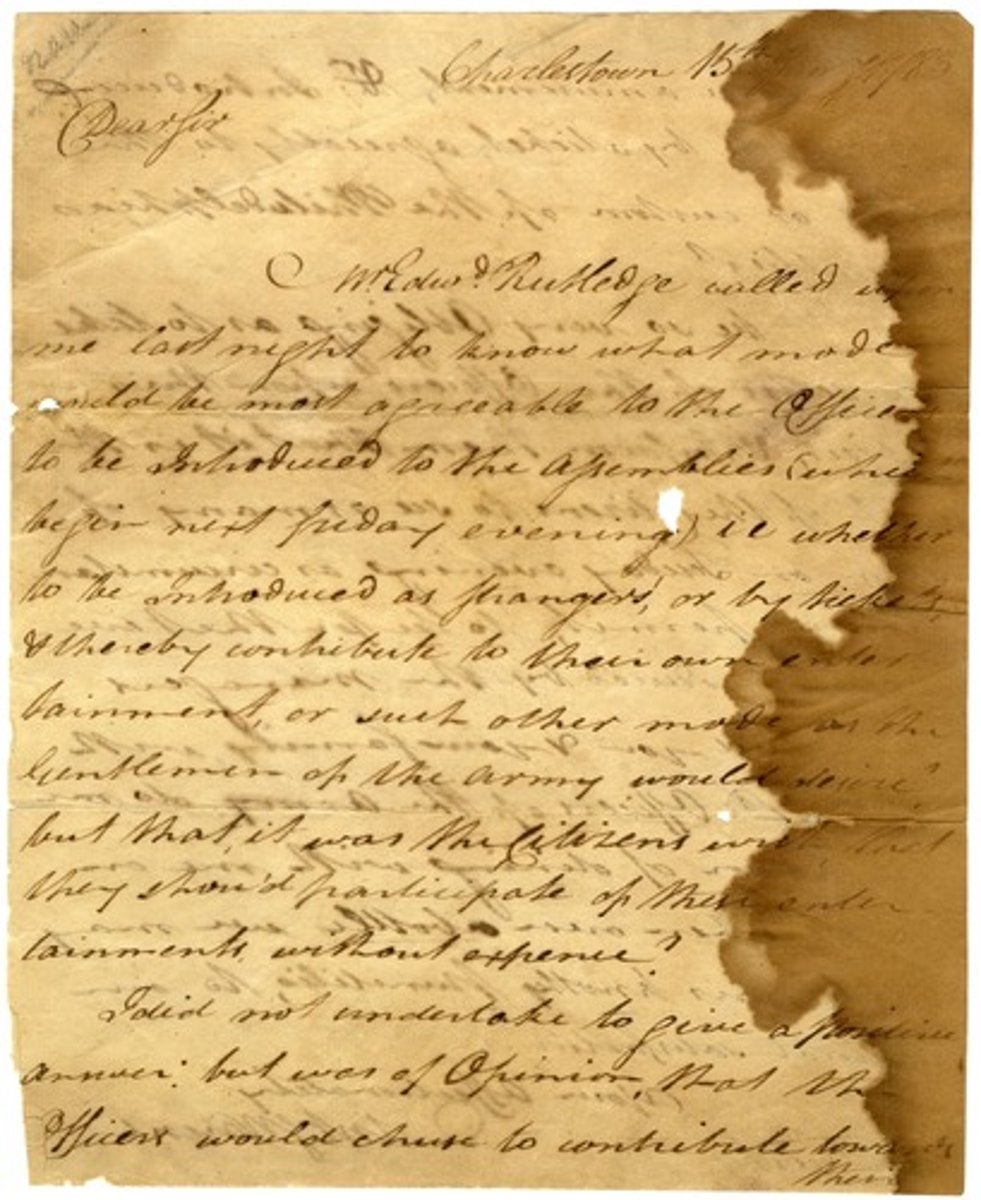 Charlestown 15th 1783
Dear Sir
Mr Edwd. Rutledge called upon
me last night to know what mode
would be most agreeable to the Officers
to be Introduced to the Assemblies (which
begin next friday evening) ie whether
to be Introduced as strangers, or by tickets,
& thereby contribute to their own enter
tainment, or such other mode as the
Gentlemen of the Army would desire?
but that, it was the Citizens wish, that
they shou'd participate of these enter
tainments, without expence?
I did not undertake to give a positive
answer: but was of Opinion, that the
Officers would chuse to contribute towards
their